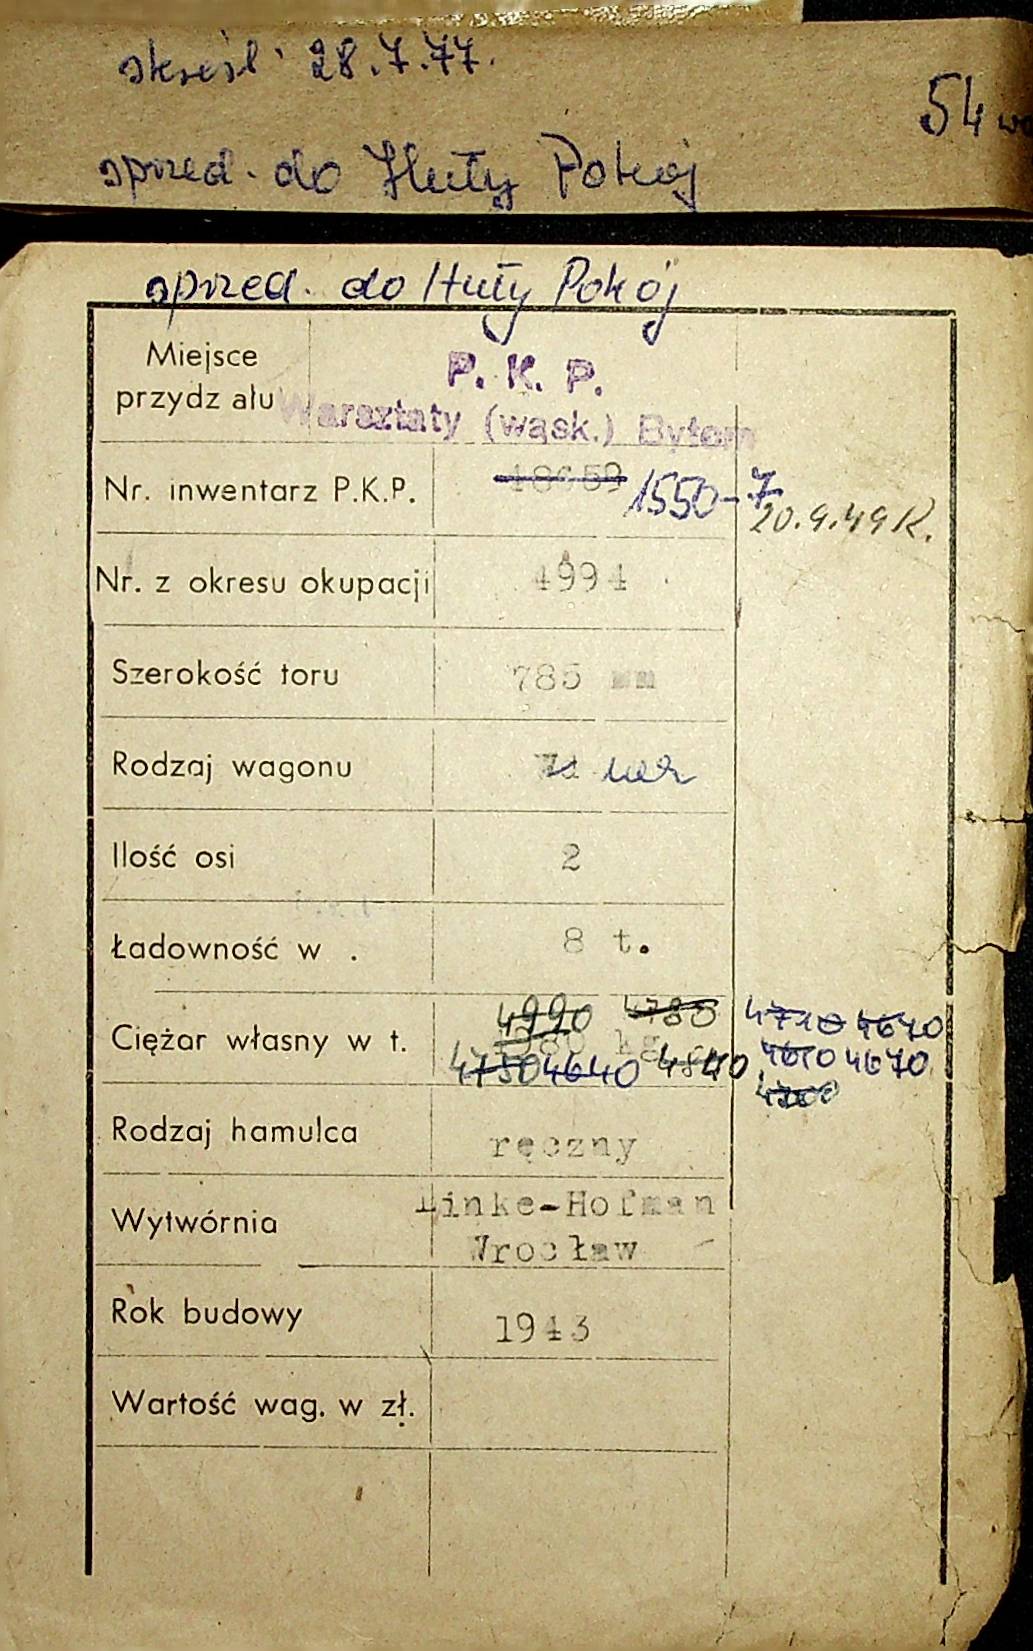 skreśl. 28.7.77.
54
sprzed. do Huty Pokój
sprzed. do Huty Pokój
Miejsce przydz ału P. K. P.
Warsztaty (wąsk.) Bytom
Nr. inwentarz P.K.P. 18659 1550-7
20.9.49 R.
Nr. z okresu okupacji 4994
Szerokość toru 785 mm
Rodzaj wagonu
Ilość osi 2
Ładowność w . 8 t.
4990 4780 4710 4640
Ciężar własny w t. kg 4610 4670
4750 4640 4840
Rodzaj hamulca ręczny
Wytwórnia Linke-Hofman
Wrocław
Rok budowy 1943
Wartość wag. w zł.